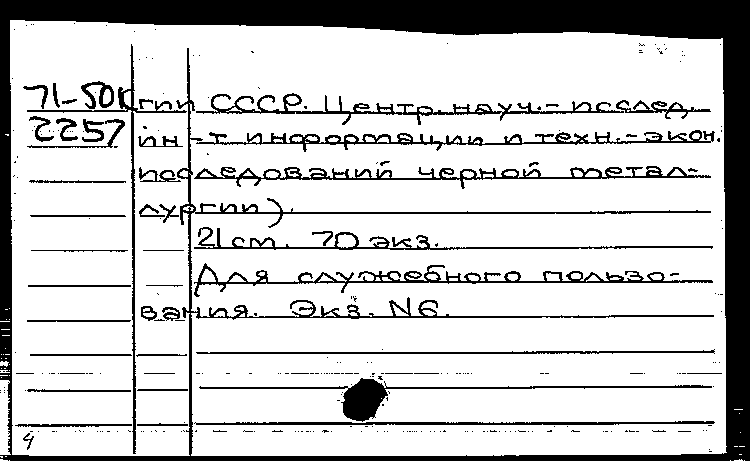 71-50к гии СССР. Центр. науч.-исслед.
2257 ин-т информации и техн.-экон.
исследований черной метал-
лургии).
21 см. 70 экз.
Для служебного пользо-
вания. Экз. N6.
4